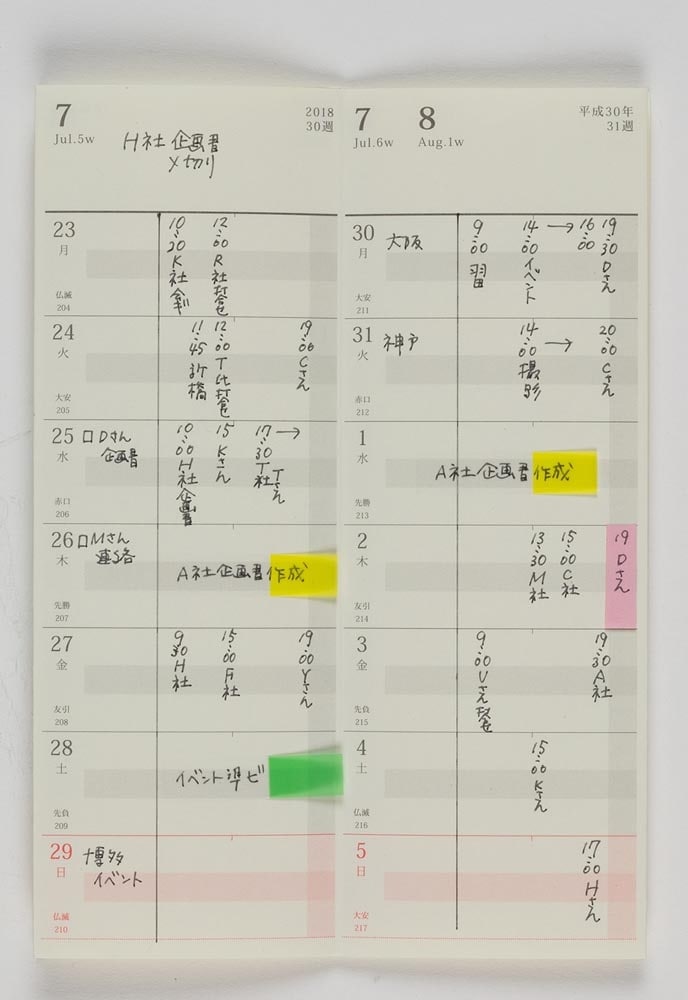 7
Jul.5w
2018
30週
H社 企画書
〆切り
23
月
仏滅
204
10:20 K社
12:00 R社打合せ
24
火
大安
205
11:45 新橋
12:00 T社打合せ
19:00 Cさん
25
水
赤口
206
□Dさん
企画書
10:00 H社企画書
15 Kさん
17:30 T社 Tさん →
26
木
先勝
207
□Mさん
連絡
A社企画書作成
27
金
友引
208
9:30 H社
15:00 F社
19:00 Yさん
28
土
先負
209
イベント準ビ
29
日
仏滅
210
博多
イベント
7
Jul.6w
8
Aug.1w
平成30年
31週
30
月
大安
211
大阪
9:00
14:00 イベント → 16:00
19:30 Dさん
31
火
赤口
212
神戸
14:00 撮影 →
20:00 Cさん
1
水
先勝
213
A社企画書作成
2
木
友引
214
13:30 M社
15:00 C社
19 Dさん
3
金
先負
215
9:00 Uさん
19:30 A社
4
土
仏滅
216
15:00 Kさん
5
日
大安
217
17:00 Hさん